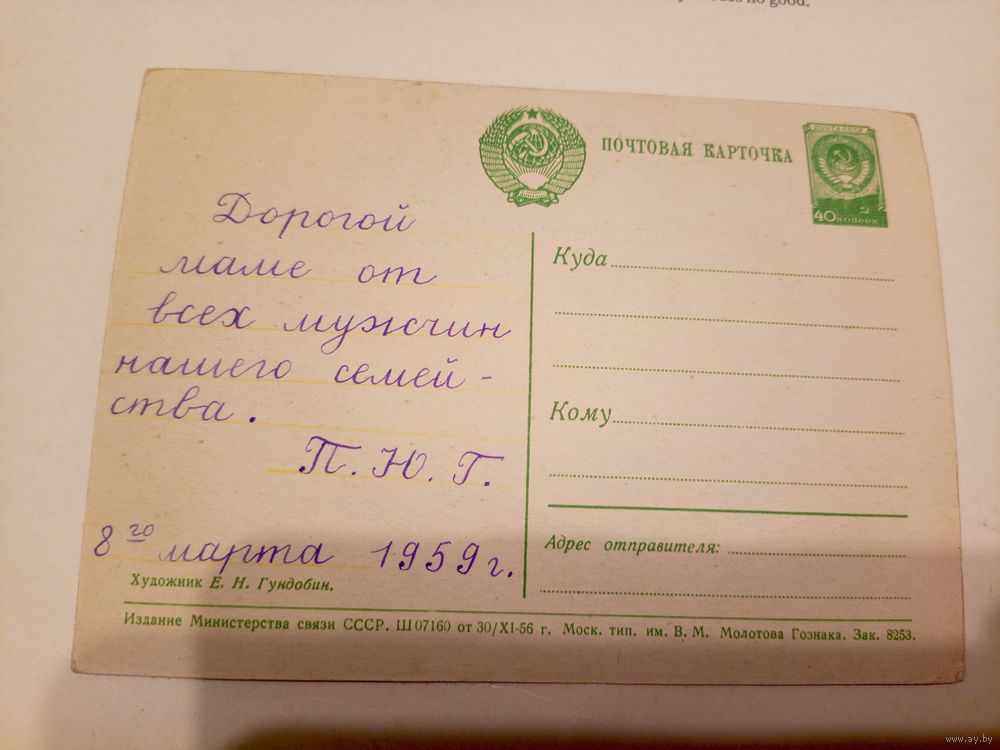 s no good.
ПОЧТОВАЯ КАРТОЧКА
ПОЧТА СССР
40 КОПЕЕК
Дорогой
маме от
всех мужчин
нашего семей-
ства.
П. Ю. Г.
8го марта 1959 г.
Художник Е. Н. Гундобин.
Куда
Кому
Адрес отправителя:
Издание Министерства связи СССР. Ш 07160 от 30/XI-56 г. Моск. тип. им. В. М. Молотова Гознака. Зак. 8253.
www.ay.by